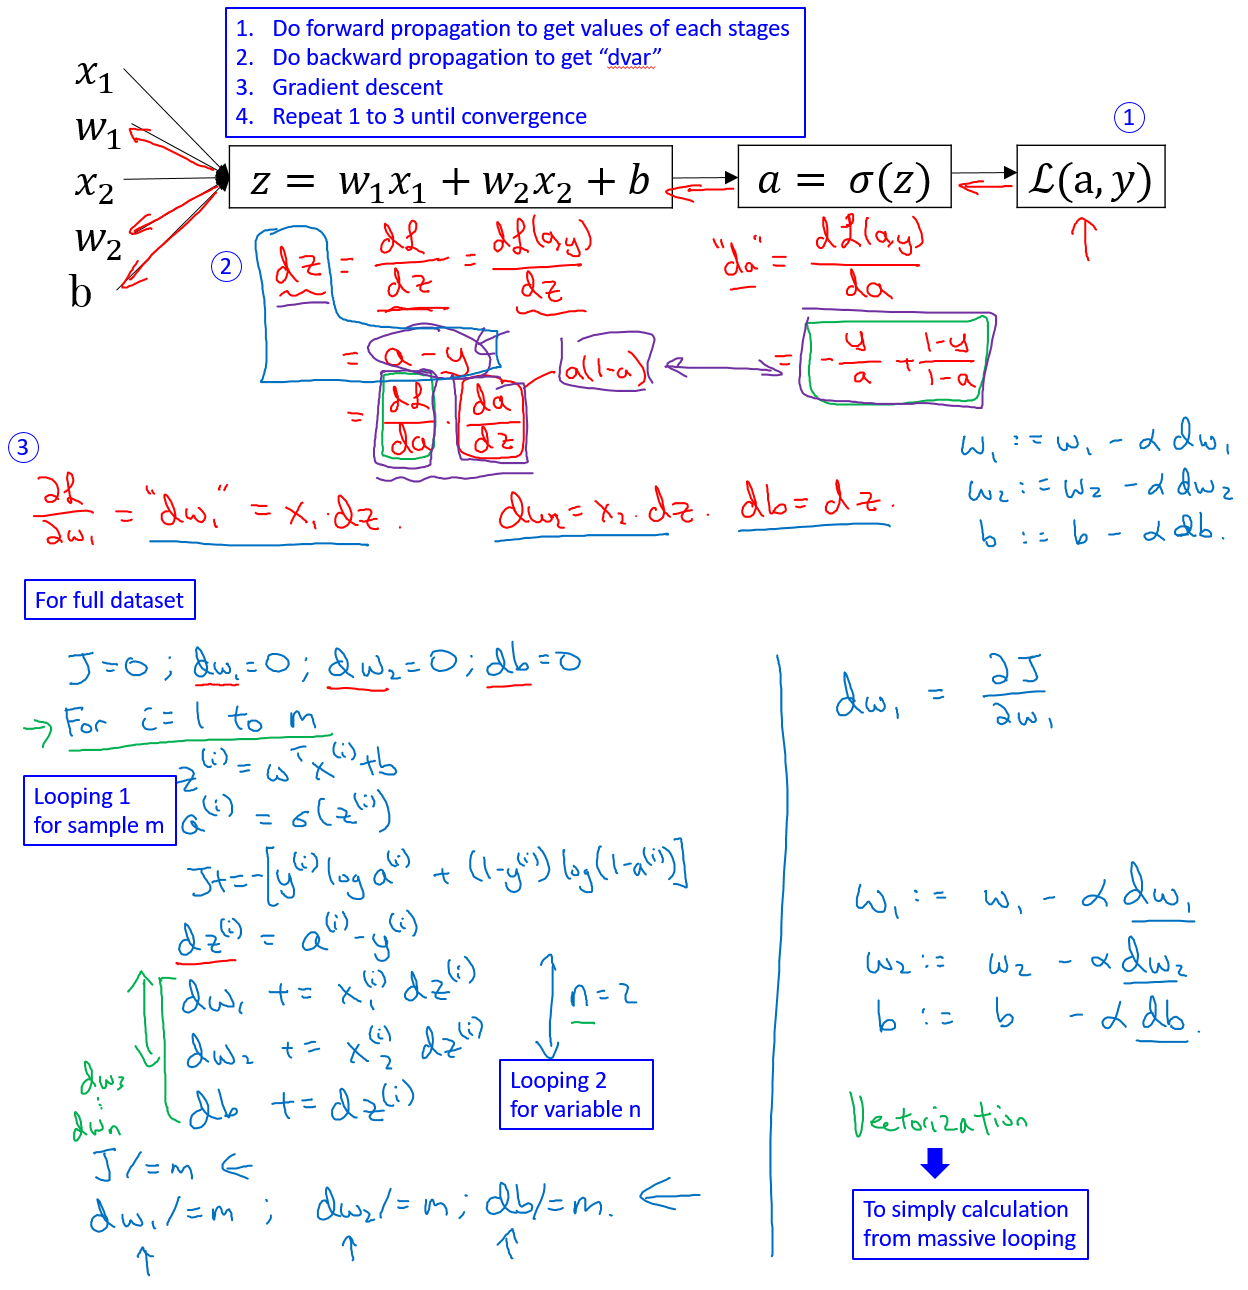 1. Do forward propagation to get values of each stages
2. Do backward propagation to get “dvar”
3. Gradient descent
4. Repeat 1 to 3 until convergence
①
x₁
w₁
x₂
w₂
b
z = w₁x₁ + w₂x₂ + b
a = σ(z)
ℒ(a, y)
②
dz = dℒ/dz = dℒ(a,y)/dz
= a - y
= dℒ/da · da/dz
a(1-a)
"da" = dℒ(a,y)/da
= -y/a + (1-y)/(1-a)
③
∂ℒ/∂w₁ = "dw₁" = x₁·dz.
dw₂ = x₂·dz.
db = dz.
w₁ := w₁ - α dw₁
w₂ := w₂ - α dw₂
b := b - α db.
For full dataset
J=0; dw₁=0; dw₂=0; db=0
→ For i=1 to m
z⁽ⁱ⁾ = wᵀx⁽ⁱ⁾+b
Looping 1
for sample m
a⁽ⁱ⁾ = σ(z⁽ⁱ⁾)
J+=-[y⁽ⁱ⁾ log a⁽ⁱ⁾ + (1-y⁽ⁱ⁾) log(1-a⁽ⁱ⁾)]
dz⁽ⁱ⁾ = a⁽ⁱ⁾-y⁽ⁱ⁾
dw₁ += x₁⁽ⁱ⁾ dz⁽ⁱ⁾
dw₂ += x₂⁽ⁱ⁾ dz⁽ⁱ⁾
db += dz⁽ⁱ⁾
n=2
Looping 2
for variable n
dw₃
⋮
dwₙ
J/=m ←
dw₁/=m; dw₂/=m; db/=m. ←
dw₁ = ∂J/∂w₁
w₁ := w₁ - α dw₁
w₂ := w₂ - α dw₂
b := b - α db.
Vectorization
To simply calculation
from massive looping